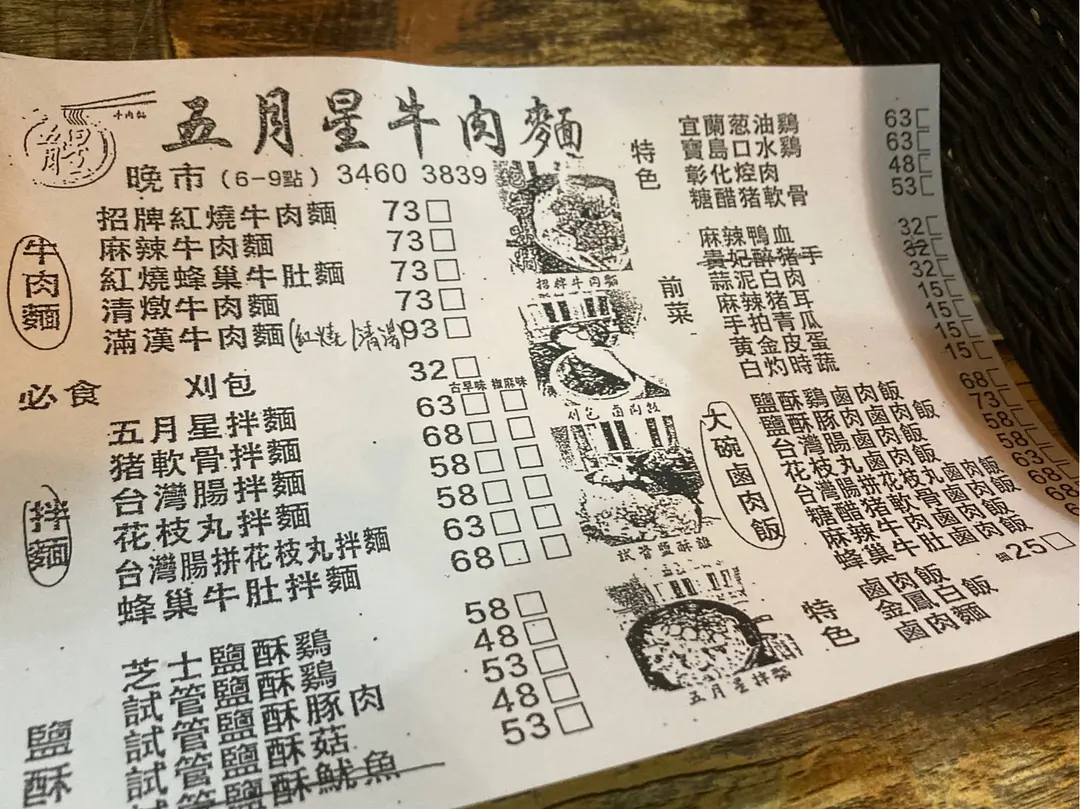 牛肉麵
五月星牛肉麵
晚市 (6-9點) 3460 3839
牛肉麵
招牌紅燒牛肉麵 73
麻辣牛肉麵 73
紅燒蜂巢牛肚麵 73
清燉牛肉麵 73
滿漢牛肉麵(紅燒/清湯) 93
必食 刈包 32
古早味 椒麻味
拌麵
五月星拌麵 63
豬軟骨拌麵 68
台灣腸拌麵 58
花枝丸拌麵 58
台灣腸拼花枝丸拌麵 63
蜂巢牛肚拌麵 68
鹽酥
芝士鹽酥雞 58
試管鹽酥雞 48
試管鹽酥豚肉 53
試管鹽酥菇 48
試管鹽酥魷魚 53
招牌牛肉麵
刈包 鹵肉飯
試管鹽酥雞
五月星拌麵
特色
宜蘭葱油鷄 63
寶島口水鷄 63
彰化焢肉 48
糖醋猪軟骨 53
前菜
麻辣鴨血 32
貴妃醉猪手 32
蒜泥白肉 32
麻辣猪耳 15
手拍青瓜 15
黃金皮蛋 15
白灼時蔬 15
大碗鹵肉飯
鹽酥鷄鹵肉飯 68
鹽酥豚肉鹵肉飯 73
台灣腸鹵肉飯 58
花枝丸鹵肉飯 58
台灣腸拼花枝丸鹵肉飯 63
糖醋猪軟骨鹵肉飯 68
麻辣牛肉鹵肉飯 68
蜂巢牛肚鹵肉飯
特色
鹵肉飯 25
金鳳白飯
鹵肉麵